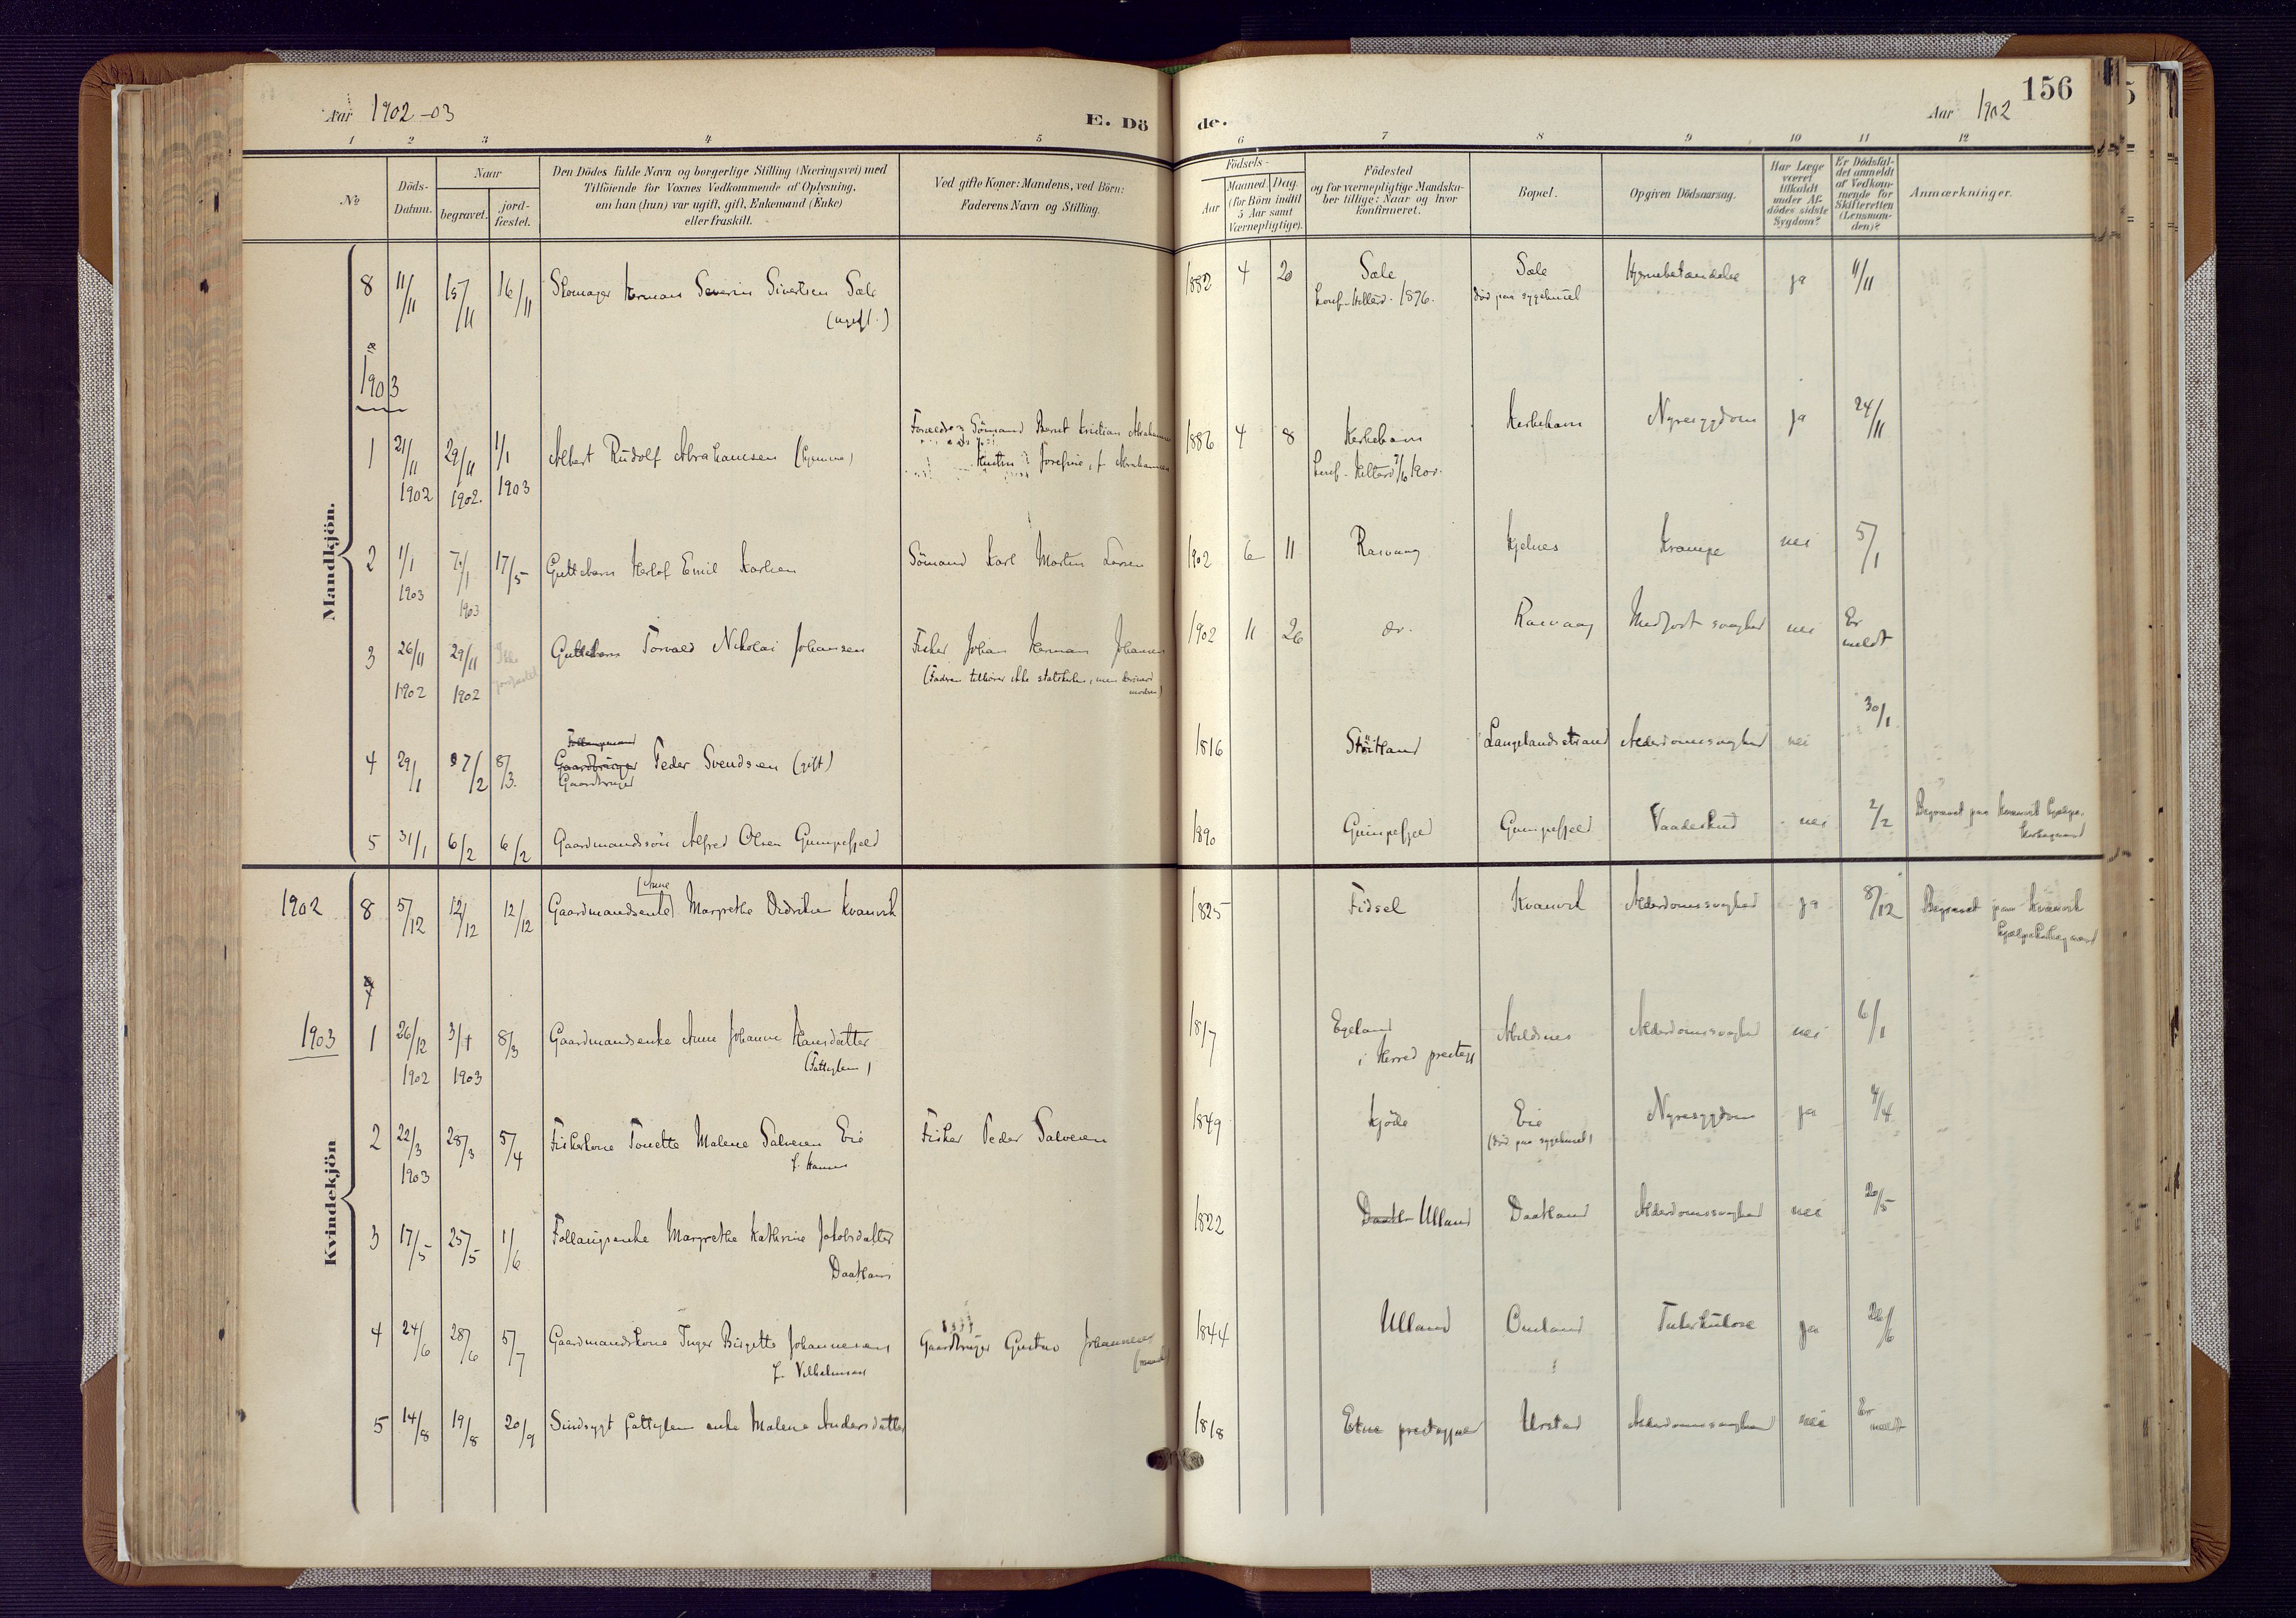 Aar 1902-03
E. Dö
de.
Aar 1902
156
1 2 3 4 5 6 7 8 9 10 11 12
No
Döds-
Datum.
Naar
begravet.
jord-
fæstet.
Den Dödes fulde Navn og borgerlige Stilling (Næringsvei) med
Tilföiende for Voxnes Vedkommende af Oplysning,
om han (hun) var ugift, gift, Enkemand (Enke)
eller fraskilt.
Ved gifte Koner: Mandens, ved Börn:
Faderens Navn og Stilling.
Födsels-
Aar
Maaned.
Dag.
(for Börn indtil
5 Aar samt
Værnepligtige).
Födested
og for værnepligtige Mandska-
ber tillige: Naar og hvor
konfirmeret.
Bopæl.
Opgiven Dödsaarsag.
Har Læge
været
tilkaldt
under Af-
dödes sidste
Sygdom?
Er Dödsfal-
det anmeldt
af Vedkom-
mende for
Skifteretten
(Lensman-
den)?
Anmærkninger.
Mandkjön.
8 11/11 15/11 16/11 Skomager Herman Severin Sivertsen Sæle
(ugift.)
1882 4 20 Sæle
Konf. 1896.
Sæle
död paa sygehuset
Hjernebetændelse ja 11/11
1903
1 21/11 1902 29/11 1902. 1/1 1903 Albert Rudolf Abrahamsen
Sömand Bernt Kristian
Josefine, f. Abrahamsen
1886 4 8 Kirkehavn
Kirkehavn Nyresygdom ja 24/11
2 1/1 1903 7/1 1903 17/5 Guttebarn Herlof Emil Karlsen Sömand Karl Martin Larsen 1902 6 11 Rasvaag Kjelnes Krampe nei 5/1
3 26/11 1902 29/11 1902 Guttebarn Torvald Nikolai Johansen Fisker Johan Herman Johansen
(Faderen tilhører ikke statskirken, men
1902 11 26 do. Rasvaag Medfødt svaghed nei Er
meldt
4 29/1 7/2 8/3. Gaardbruger Peder Svendsen (gift)
Gaardbruger
1816 Störtland Langelandstrand Alderdomssvaghed nei 30/1
5 31/1 6/2 6/2 Gaardmandssön Alfred Olsen Gumpefjeld 1890 Gumpefjeld Gumpefjeld Vaadeskud nei 2/2 Begravet paa Kvanvik hjælpe-
kirkegaard
Kvindekjön
1902 8 5/12 12/12 12/12 Gaardmandsenke Anne Margrethe Didriksen Kvanvik 1825 Fidsel Kvanvik Alderdomssvaghed ja 8/12 Begravet paa Kvanvik
hjælpekirkegaard
1903 1 26/12 1902 3/1 1903 8/3 Gaardmandsenke Anne Johanne Hansdatter
(Fattiglem)
1817 Egeland
i Herred prestegj
Abeldnes Alderdomssvaghed nei 6/1
2 22/3 1903 28/3 5/4 Fiskerkone Tonette Malene Salvesen Eie
f. Hansen
Fisker Peder Salvesen 1849 Kjöde Eie
(död paa sygehuset)
Nyresygdom ja 4/4
3 17/5 25/5 1/6 Follaugsenke Margrethe Kathrine Jakobsdatter
Daatland
1822 Daatl Ulland Daatland Alderdomssvaghed nei 20/5
4 24/6 28/6 5/7 Gaardmandskone Inger Birgitte Johannesen
f. Vilhelmsen
Gaardbruger Gustav Johannesen
1844 Ulland Omland Tuberkulose ja 26/6
5 14/8 19/8 20/9 Sindsygt fattiglem enke Malene Andersdatter 1818 Etne prestegjeld Urstad Alderdomssvaghed nei Er
meldt